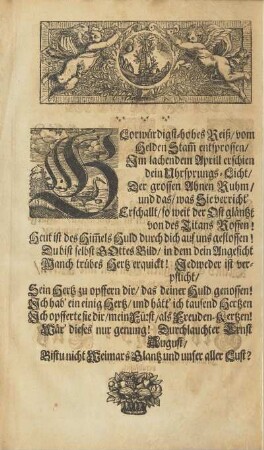 GLorwürdigst-hohes Reiß/vom
Helden Stam̃ entsprossen/
Im lachendem Aprill erschien
dein Uhrsprungs-Licht/
Der grossen Ahnen Ruhm/
und das/was Sie verricht'
Erschallt/so weit der Ost gläntzt
von des Titans Rossen!
Heut ist des Him̃els Huld durch dich auf uns geflossen!
Du bist selbst GOttes Bild/in dem dein Angesicht
Manch trübes Hertz erquickt! Jedweder ist ver-
pflicht/
Sein Hertz zu opffern dir/das deiner Huld genossen!
Ich hab' ein einig Hertz/und hätt' ich tausend Hertzen
Ich opfferte sie dir/mein Fürst/als Freuden-Kertzen!
Wär' dieses nur genung! Durchlauchter Ernst
August/
Bistu nicht Weimars Glantz und unser aller Lust?